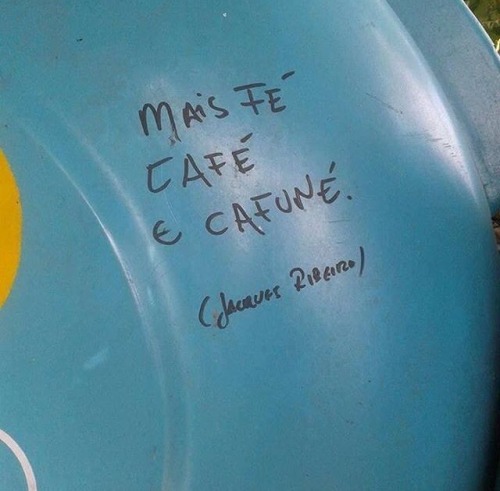 MAIS FÉ
CAFÉ
E CAFUNÉ.
(JACQUES RIBEIRO)